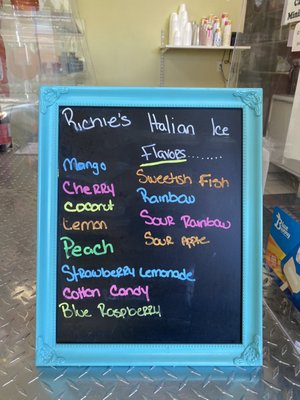 Richie's Italian Ice
Flavors........
Mango
Cherry
Coconut
Lemon
Peach
Strawberry Lemonade
Cotton Candy
Blue Raspberry
Sweetish Fish
Rainbow
Sour Rainbow
Sour Apple
Blue Bunny